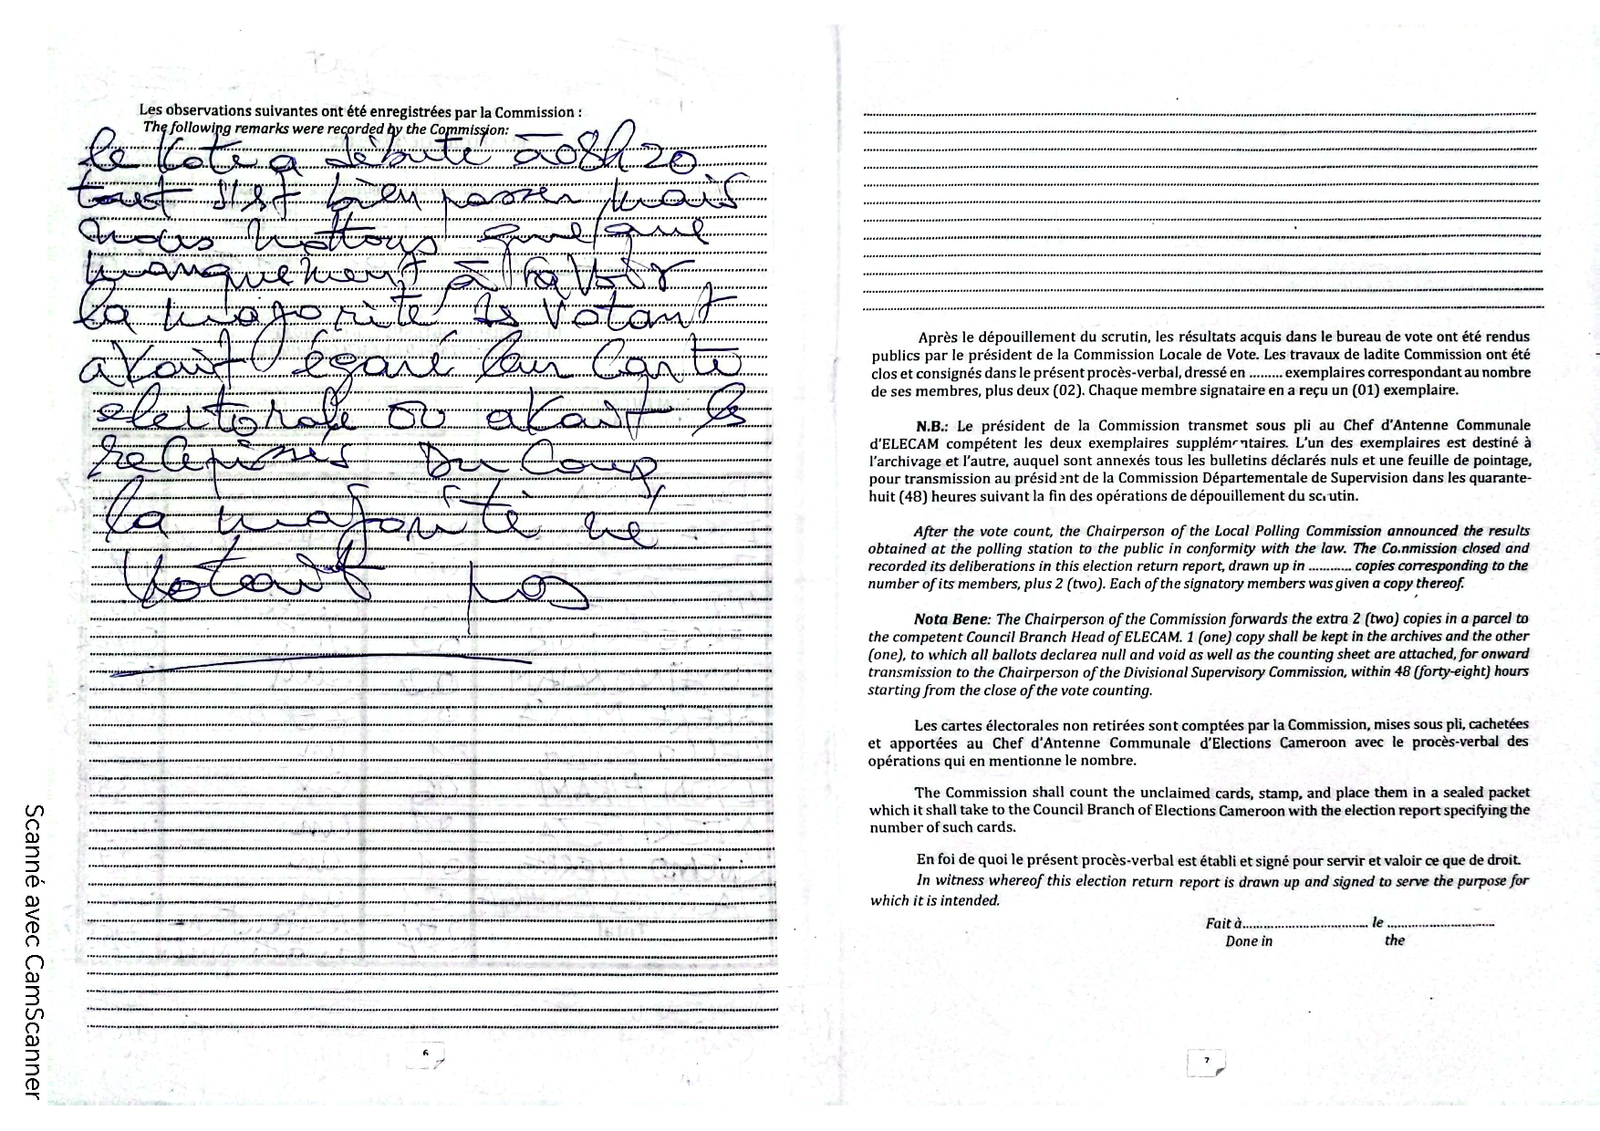 Les observations suivantes ont été enregistrées par la Commission :
The following remarks were recorded by the Commission:
le vote a débuté à 08h20
tout s'est bien passer, mais
nous nottons quelque
manquement à savoir
la majorité de votant
avait égaré leur carte
electorale ou avait les
recépissés Du Coup,
la majorité ne
votait pas
6
Après le dépouillement du scrutin, les résultats acquis dans le bureau de vote ont été rendus
publics par le président de la Commission Locale de Vote. Les travaux de ladite Commission ont été
clos et consignés dans le présent procès-verbal, dressé en ......... exemplaires correspondant au nombre
de ses membres, plus deux (02). Chaque membre signataire en a reçu un (01) exemplaire.
N.B.: Le président de la Commission transmet sous pli au Chef d'Antenne Communale
d'ELECAM compétent les deux exemplaires supplémentaires. L'un des exemplaires est destiné à
l'archivage et l'autre, auquel sont annexés tous les bulletins déclarés nuls et une feuille de pointage,
pour transmission au président de la Commission Départementale de Supervision dans les quarante-
huit (48) heures suivant la fin des opérations de dépouillement du scrutin.
After the vote count, the Chairperson of the Local Polling Commission announced the results
obtained at the polling station to the public in conformity with the law. The Commission closed and
recorded its deliberations in this election return report, drawn up in ............ copies corresponding to the
number of its members, plus 2 (two). Each of the signatory members was given a copy thereof.
Nota Bene: The Chairperson of the Commission forwards the extra 2 (two) copies in a parcel to
the competent Council Branch Head of ELECAM. 1 (one) copy shall be kept in the archives and the other
(one), to which all ballots declarea null and void as well as the counting sheet are attached, for onward
transmission to the Chairperson of the Divisional Supervisory Commission, within 48 (forty-eight) hours
starting from the close of the vote counting.
Les cartes électorales non retirées sont comptées par la Commission, mises sous pli, cachetées
et apportées au Chef d'Antenne Communale d'Elections Cameroon avec le procès-verbal des
opérations qui en mentionne le nombre.
The Commission shall count the unclaimed cards, stamp, and place them in a sealed packet
which it shall take to the Council Branch of Elections Cameroon with the election report specifying the
number of such cards.
En foi de quoi le présent procès-verbal est établi et signé pour servir et valoir ce que de droit.
In witness whereof this election return report is drawn up and signed to serve the purpose for
which it is intended.
Fait à................................. le ............................
Done in the
7
Scanné avec CamScanner